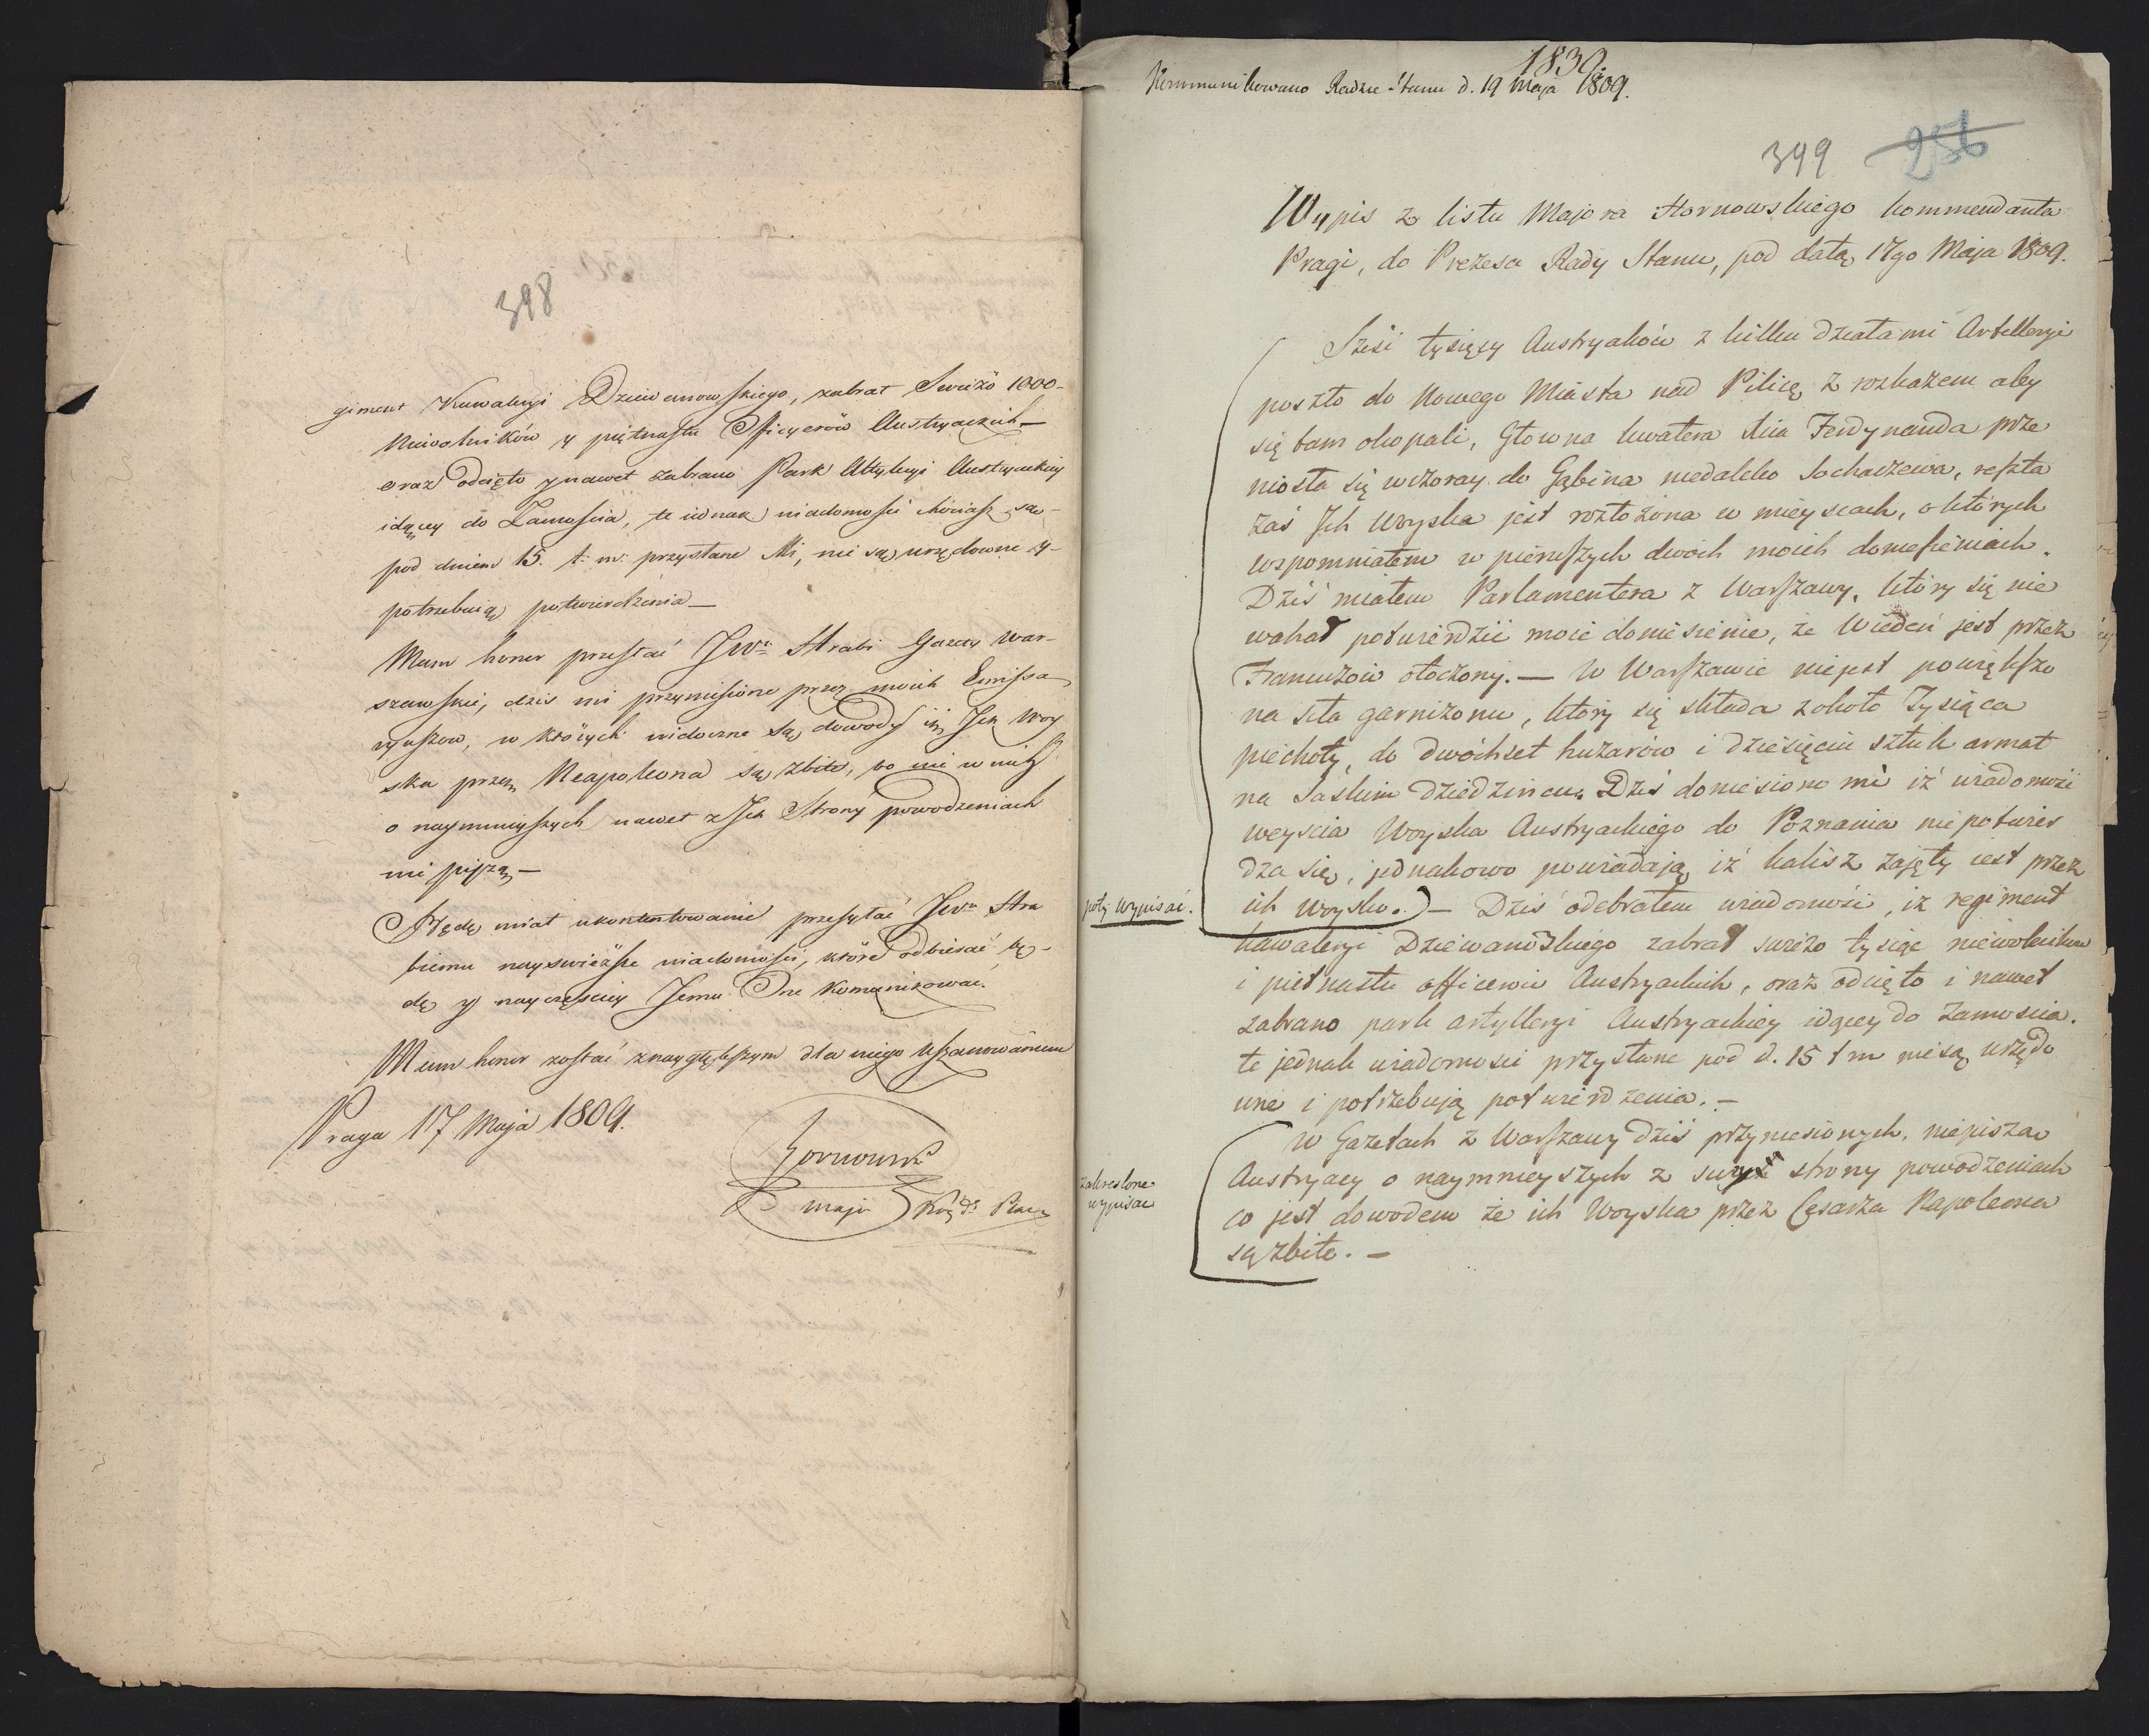 398
giment Kawaleryi Dziewanowskiego, zabrał Swieżo 1000-
Niewolników y piętnastu Officyerów Austryackich—
oraz odcięto y nawet zabrano Park Artyleryi Austryackiey
idący do Zamościa, te iednak wiadomości chociasz są-
pod dniem 15. t: m: przysłane Mi, nie są urzędowne y-
potrzebuią potwierdzenia—
Mam honor przesłać JWu Hrabi Gazety War-
szawskie, dzis mi przyniesione przez moich Emissa
ryuszow, w których widoczne są dowody iż Jch Woy
ska przez Neapoleona są zbite, bo nie w nich
o naymnieyszych nawet z Jch Strony powodzeniach
nie piszą—
Będę miał ukontentowanie przesyłać JWu Hra
biemu nayswieższe wiadomości, które odbierać bę-
dę y nayczęsciey Jemu One Komunikować.
Mam honor zostać z naygłębszym dla niego Uszanowaniem
Praga 17. Maja 1809.
Hornowski
major
1830.
Kommunikowano Radzie Stanu d. 19 Maja 1809.
399 256
Wypis z listu Majora Hornowskiego kommendanta
Pragi, do Prezesa Rady Stanu, pod datą 17go Maja 1809.
Sześć tysięcy Austryaków z kilku działami Artelleryi
poszło do Nowego Miasta nad Pilicę z rozkazem aby
się tam okopali, Głowna kwatera Xcia Ferdynanda prze
niosła się wczoray do Gąbina niedaleko Sochaczewa, reszta
zaś Jch Woyska jest rozłożona w mieyscach, o których
wspomniałem w pierwszych dwóch moich doniesieniach.
Dziś miałem Parlamentera z Warszawy, który się nie
wahał potwierdzić moie doniesienie, że Wiedeń jest przez
Francuzów otoczony.— W Warszawie niejest powiększo
na siła garnizonu, który się składa z około Tysiąca
piechoty, do dwóchset huzarów i dziesięciu sztuk armat
na Saskim dziedzińcu. Dziś doniesiono mi iż wiadomość
weyscia Woyska Austryackiego do Poznania niepotwier
dza się, jednakowo powiadają iż Kalisz zajęty iest przez
poty wypisać.
ich woysko.)— Dziś odebrałem wiadomość, iż regiment
kawaleryi Dziewanowskiego zabrał swieżo tysiąc niewolników
i piętnastu officerów Austryackich, oraz odcięto i nawet
zabrano park artylleryi Austryackiey idący do Zamoscia.
te jednak wiadomosci przysłane pod d. 15 t m niesą urzędo
wne i potrzebują potwierdzenia.—
W Gazetach z Warszawy dziś przyniesionych, niepisza
zakreslone
wypisac
Austryacy o naymnieyszych z swey strony powodzeniach
co jest dowodem że ich Woyska przez Cesarza Napoleona
są zbite.—